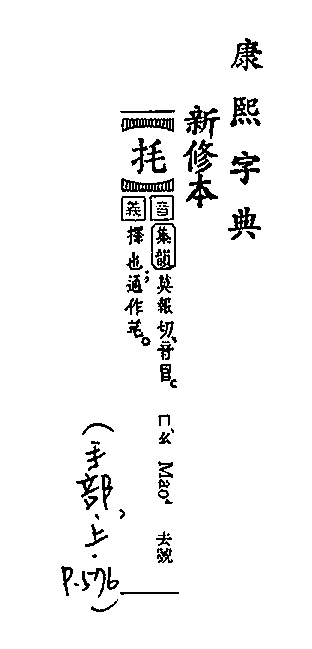 康熙字典
新修本
㧌
音 集韻 莫報切、音冒。 ㄇㄠˋ Mao⁴ 去號
義 擇也；通作芼。
(手部、上. P.576)